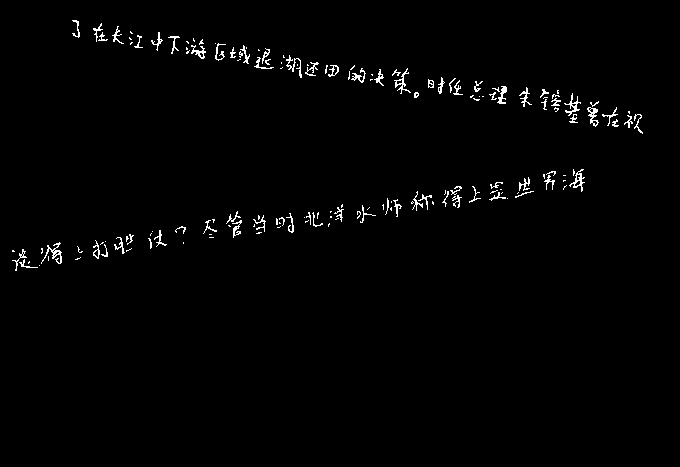 了在长江中下游区域退湖还田的决策。时任总理朱镕基曾在视
谈得上打胜仗？尽管当时北洋水师称得上是世界海